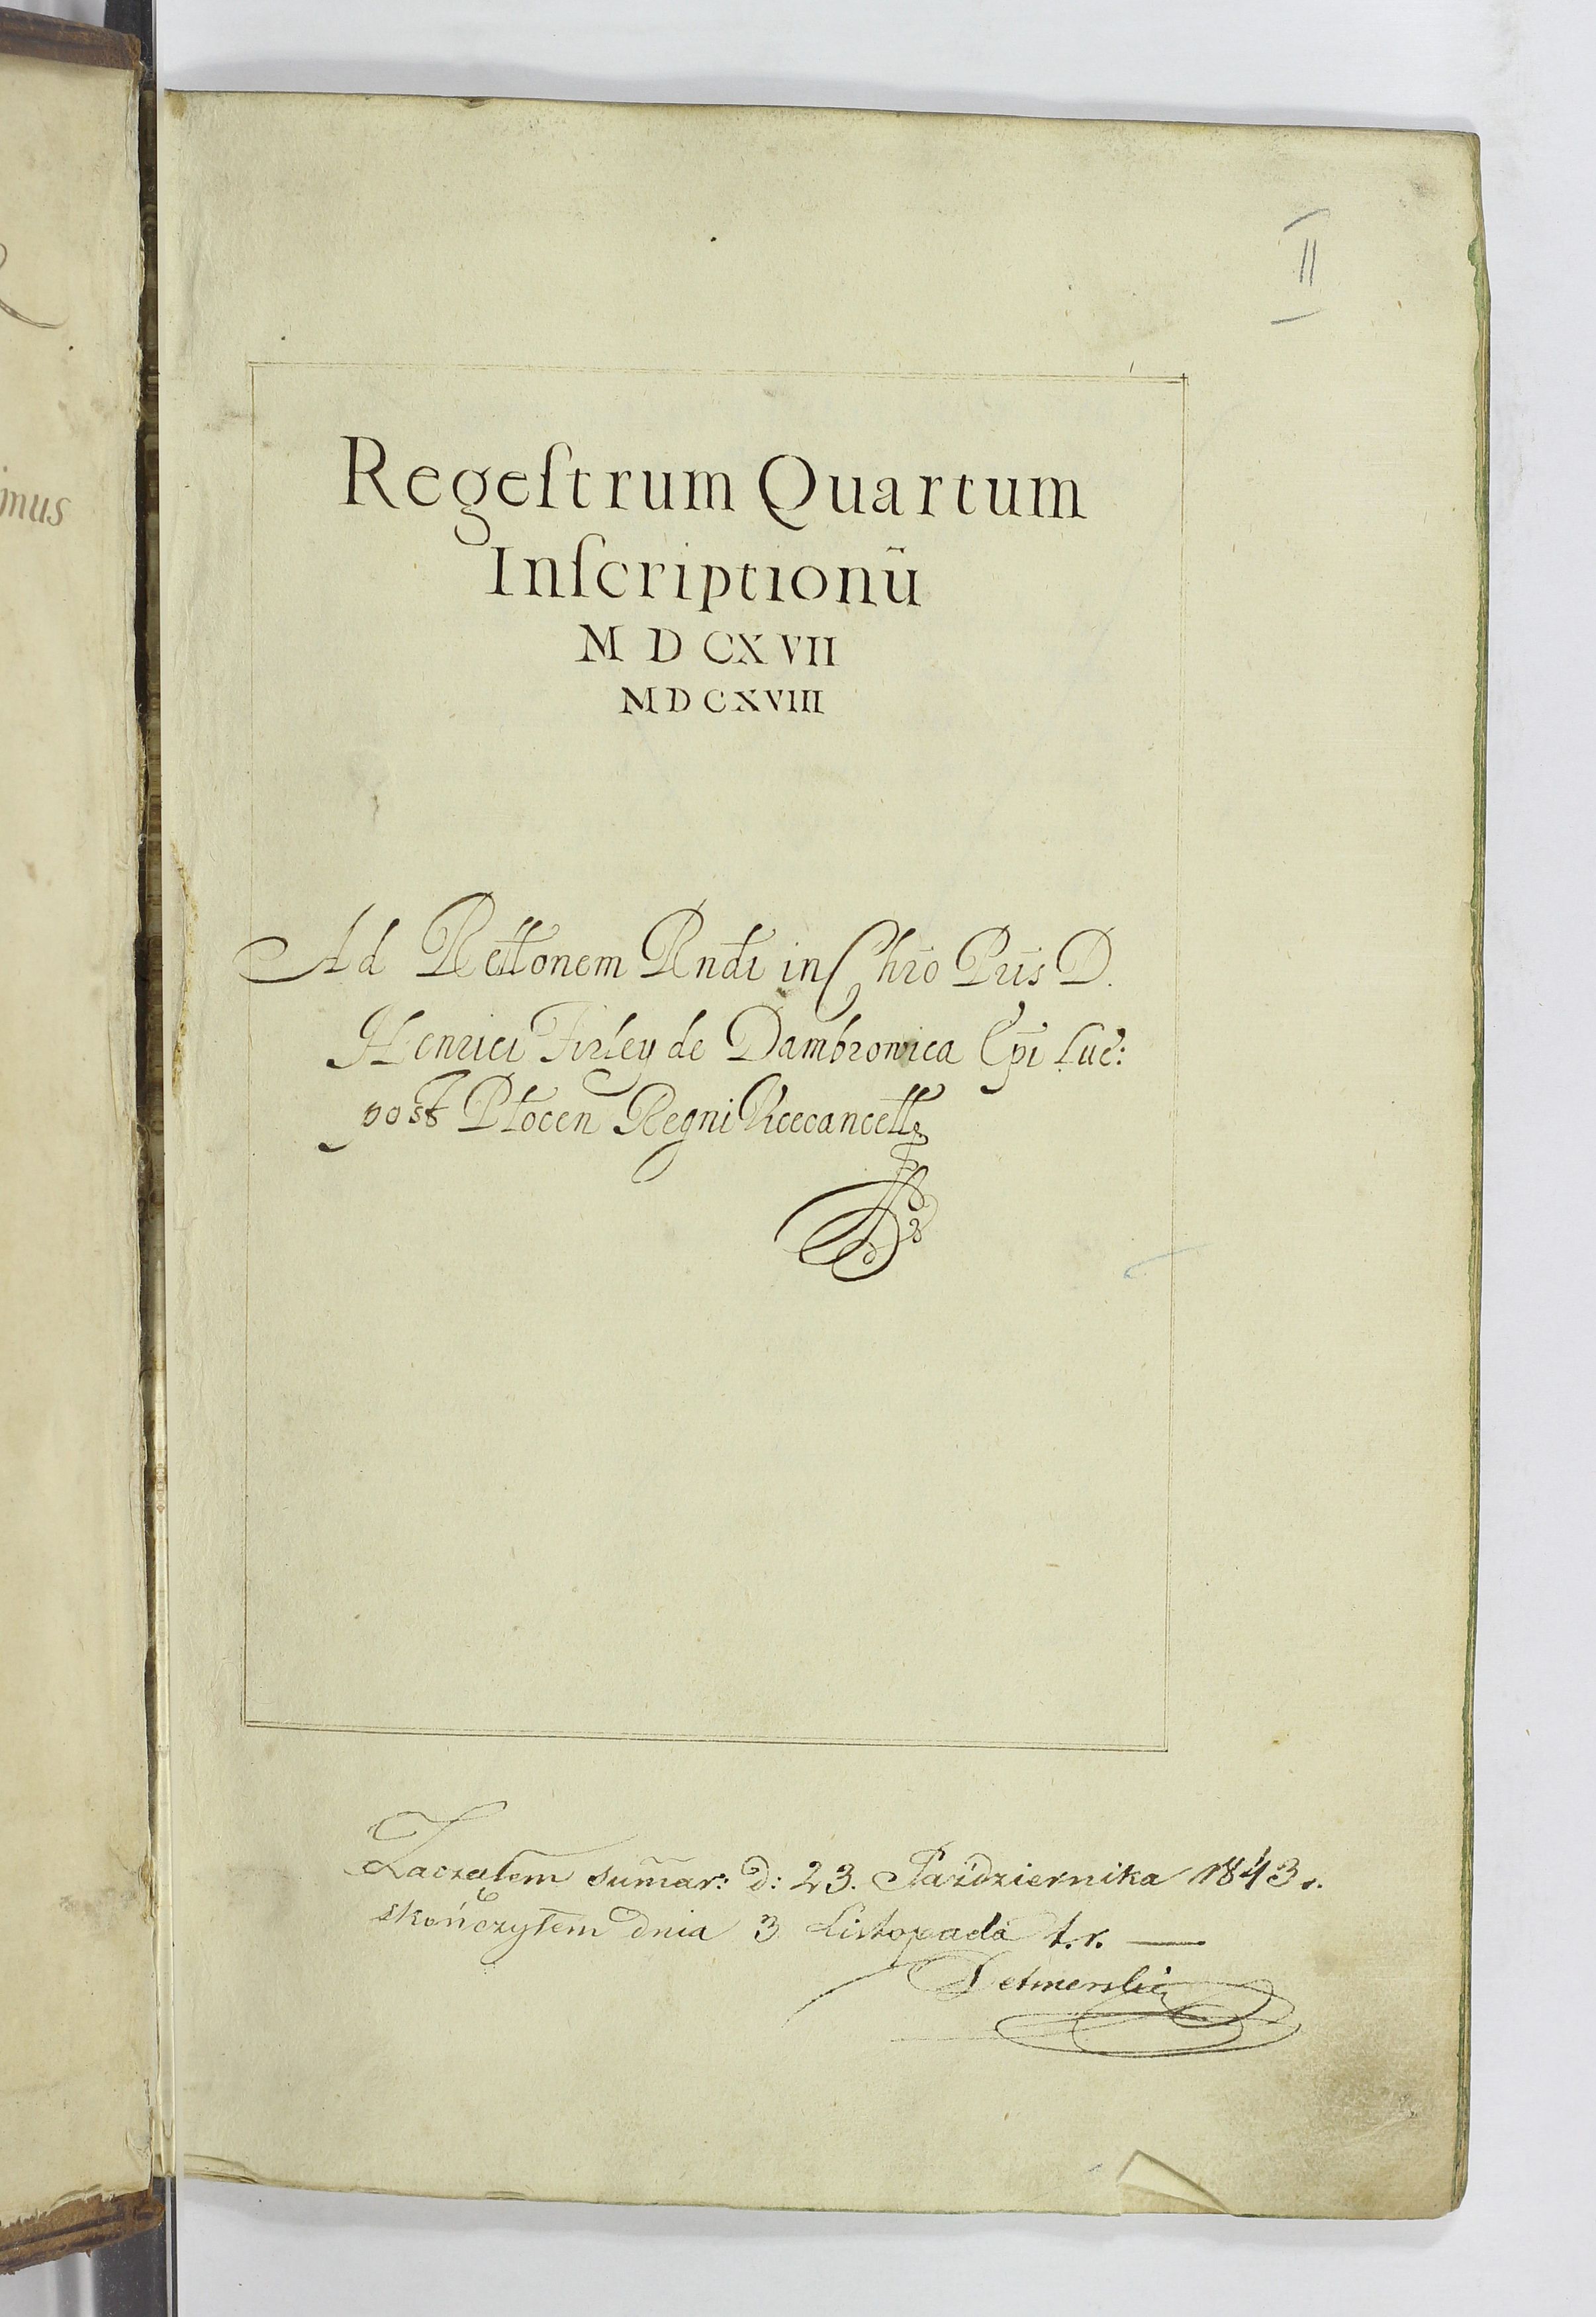 II
mus
Regeſtrum Quartum
Inſcriptionũ
M D CX VII
MDCXVIII
Ad Rellonem Rndi in Chro Pris D.
Henrici Firley de Dambrowica Epi Luc:
post Plocen Regni Vicecancell
Zacząłem sum̃ar: d: 23. Października 1843 r.
skończyłem dnia 3 Listopada t.r. —